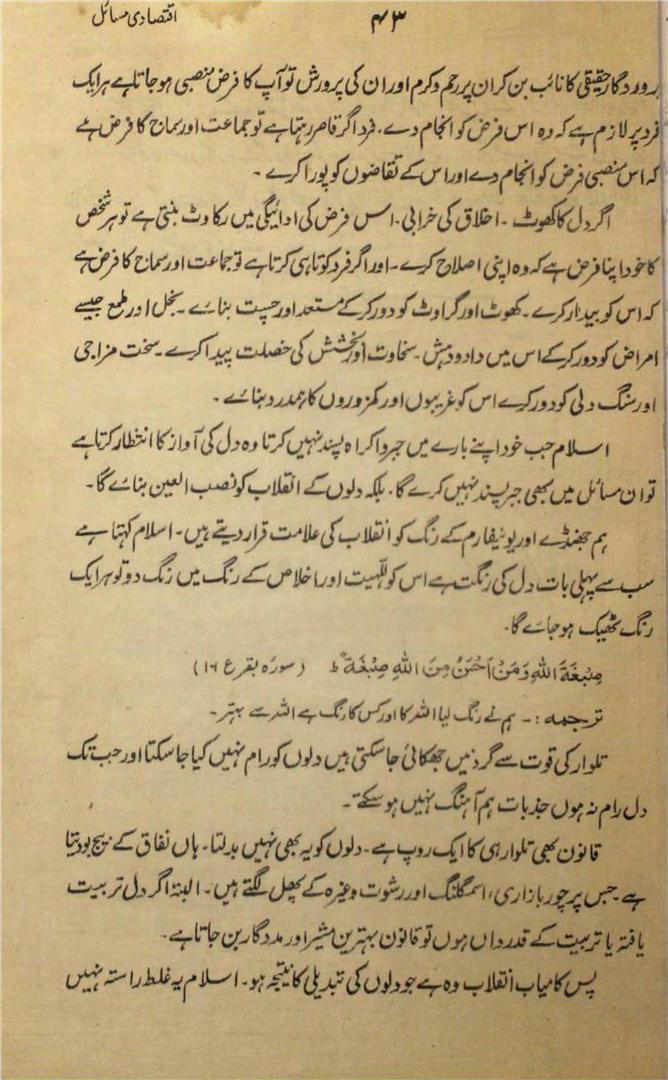 ۴۳ اقتصادی مسائل
پروردگار حقیقی کا نائب بن کر ان پر رحم و کرم اور ان کی پرورش تو آپ کا فرض منصبی ہو جاتا ہے ہر ایک
فرد پر لازم ہے کہ وہ اس فرض کو انجام دے۔ فرد اگر قاصر رہتا ہے تو جماعت اور سماج کا فرض ہے
کہ اس منصبی فرض کو انجام دے اور اس کے تقاضوں کو پورا کرے۔
اگر دل کا کھوٹ ۔ اخلاق کی خرابی ۔ اس فرض کی ادائیگی میں رکاوٹ بنتی ہے تو ہر شخص
کا خود اپنا فرض ہے کہ وہ اپنی اصلاح کرے۔ اور اگر فرد کوتاہی کرتا ہے تو جماعت اور سماج کا فرض ہے
کہ اس کو بیدار کرے۔ کھوٹ اور گراوٹ کو دور کر کے مستعد اور چست بنائے ۔ بخل اور طمع جیسے
امراض کو دور کر کے اس میں داد و دہش ۔ سخاوت اور بخشش کی خصلت پیدا کرے ۔ سخت مزاجی
اور سنگ دلی کو دور کرے اس کو غریبوں اور کمزوروں کا ہمدرد بنائے ۔
اسلام جب خود اپنے بارے میں جبر و اکراہ پسند نہیں کرتا وہ دل کی آواز کا انتظار کرتا ہے
تو ان مسائل میں بھی جبر پسند نہیں کرے گا۔ بلکہ دلوں کے انقلاب کو نصب العین بنائے گا۔
ہم جھنڈے اور یونیفارم کے رنگ کو انقلاب کی علامت قرار دیتے ہیں۔ اسلام کہتا ہے
سب سے پہلی بات دل کی رنگت ہے اس کو للّٰہیت اور اخلاص کے رنگ میں رنگ دو تو ہر ایک
رنگ ٹھیک ہو جائے گا۔
صِبْغَةَ اللهِ وَمَنْ اَحْسَنُ مِنَ اللهِ صِبْغَةً ط (سورہ بقرع ۱۶)
ترجمہ :۔ ہم نے رنگ لیا اللہ کا اور کس کا رنگ ہے اللہ سے بہتر۔
تلوار کی قوت سے گردنیں جھکائی جا سکتی ہیں دلوں کو رام نہیں کیا جا سکتا اور جب تک
دل رام نہ ہوں جذبات ہم آہنگ نہیں ہو سکتے۔
قانون بھی تلوار ہی کا ایک روپ ہے۔ دلوں کو یہ بھی نہیں بدلتا۔ ہاں نفاق کے بیج بو دیتا
ہے جس پر چور بازاری، اسمگلنگ اور رشوت وغیرہ کے پھل لگتے ہیں۔ البتہ اگر دل تربیت
یافتہ یا تربیت کے قدرداں ہوں تو قانون بہترین مشیر اور مددگار بن جاتا ہے۔
پس کامیاب انقلاب وہ ہے جو دلوں کی تبدیلی کا نتیجہ ہو۔ اسلام یہ غلط راستہ نہیں